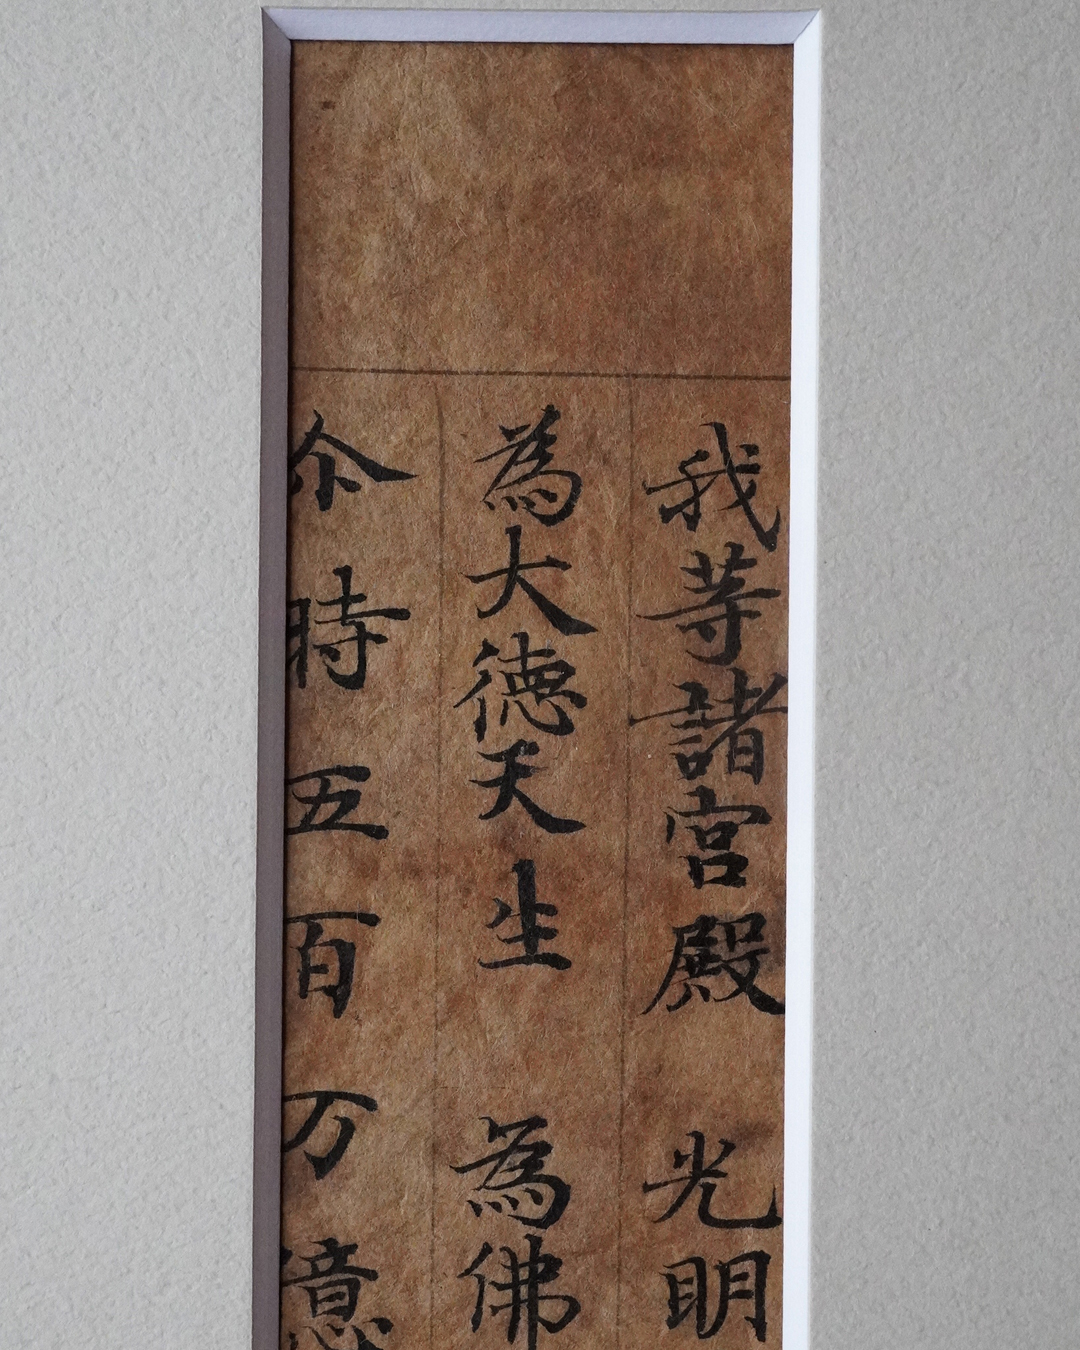 我等諸宮殿 光明
為大德天生 為佛
尒時五百万億